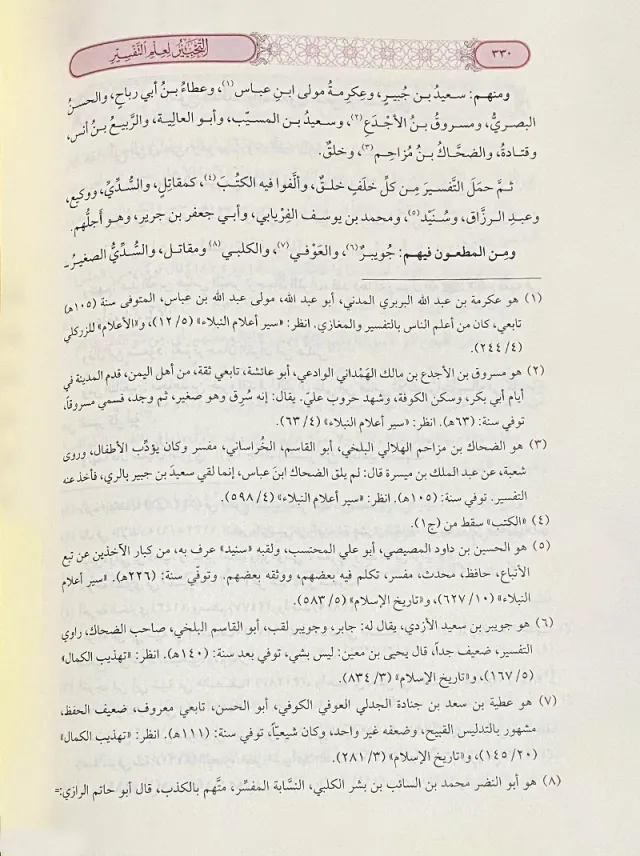 ٣٣٠
التحبير لعلم التفسير
ومنهم: سعيدُ بن جُبيرٍ، وعِكرِمةُ مولى ابنِ عباس(١)، وعطاءُ بنُ أبي رباحٍ، والحسنُ
البصريُّ، ومسروقُ بنُ الأجْدَعِ(٢)، وسعيدُ بن المسيَّب، وأبو العالِية، والرَّبيعُ بنُ أنس،
وقتادةُ، والضحَّاكُ بنُ مُزاحِم(٣)، وخلقٌ.
ثمَّ حمَلَ التَّفسيرَ مِن كلِّ خلَفٍ خلقٌ، وألَّفوا فيه الكتُبَ(٤)، كمقاتلٍ، والسُّدِّيِّ، ووكيع،
وعبدِ الرزَّاق، وسُنَيْد(٥)، ومحمد بن يوسف الفِرْيابي، وأبي جعفر بن جرير، وهو أجلُّهم.
ومِن المطعون فيهم: جُويبرٌ(٦)، والعَوْفي(٧)، والكلبي(٨) ومقاتل، والسُّدِّيُّ الصغيرُ ــ
(١) هو عكرمة بن عبد الله البربري المدني، أبو عبد الله، مولى عبد الله بن عباس، المتوفى سنة (١٠٥هـ)
تابعي، كان من أعلم الناس بالتفسير والمغازي. انظر: «سير أعلام النبلاء» (٥/ ١٢)، و«الأعلام» للزركلي
(٤/ ٢٤٤).
(٢) هو مسروق بن الأجدع بن مالك الهَمْداني الوادعي، أبو عائشة، تابعي ثقة، من أهل اليمن، قدم المدينة في
أيام أبي بكر، وسكن الكوفة، وشهد حروب عليّ. يقال: إنه سُرِق وهو صغير، ثم وجد، فسمي مسروقاً،
توفي سنة: (٦٣هـ). انظر: «سير أعلام النبلاء» (٤/ ٦٣).
(٣) هو الضحاك بن مزاحم الهلالي البلخي، أبو القاسم، الخُراساني، مفسر وكان يؤدِّب الأطفال، وروى
شعبة، عن عبد الملك بن ميسرة قال: لم يلق الضحاك ابنَ عباس، إنما لقي سعيدَ بن جبير بالري، فأخذ عنه
التفسير. توفي سنة: (١٠٥هـ). انظر: «سير أعلام النبلاء» (٤/ ٥٩٨).
(٤) «الكتب» سقط من (ج١).
(٥) هو الحسين بن داود المصيصي، أبو علي المحتسب، ولقبه «سنيد» عرف به، من كبار الآخذين عن تبع
الأتباع، حافظ، محدث، مفسر، تكلم فيه بعضهم، ووثقه بعضهم. وتوفّي سنة: (٢٢٦هـ). «سير أعلام
النبلاء» (١٠/ ٦٢٧)، و«تاريخ الإسلام» (٥/ ٥٨٣).
(٦) هو جويبر بن سعيد الأزدي، يقال له: جابر، وجويبر لقب، أبو القاسم البلخي، صاحب الضحاك، راوي
التفسير، ضعيف جداً، قال يحيى بن معين: ليس بشي، توفي بعد سنة: (١٤٠هـ). انظر: «تهذيب الكمال»
(٥/ ١٦٧)، و«تاريخ الإسلام» (٣/ ٨٣٤).
(٧) هو عطية بن سعد بن جنادة الجدلي العوفي الكوفي، أبو الحسن، تابعي معروف، ضعيف الحفظ،
مشهور بالتدليس القبيح، وضعفه غير واحد، وكان شيعيّاً، توفي سنة: (١١١هـ). انظر: «تهذيب الكمال»
(٢٠/ ١٤٥)، و«تاريخ الإسلام» (٣/ ٢٨١).
(٨) هو أبو النضر محمد بن السائب بن بشر الكلبي، النسَّابة المفسِّر، متَّهم بالكذب، قال أبو حاتم الرازي:=